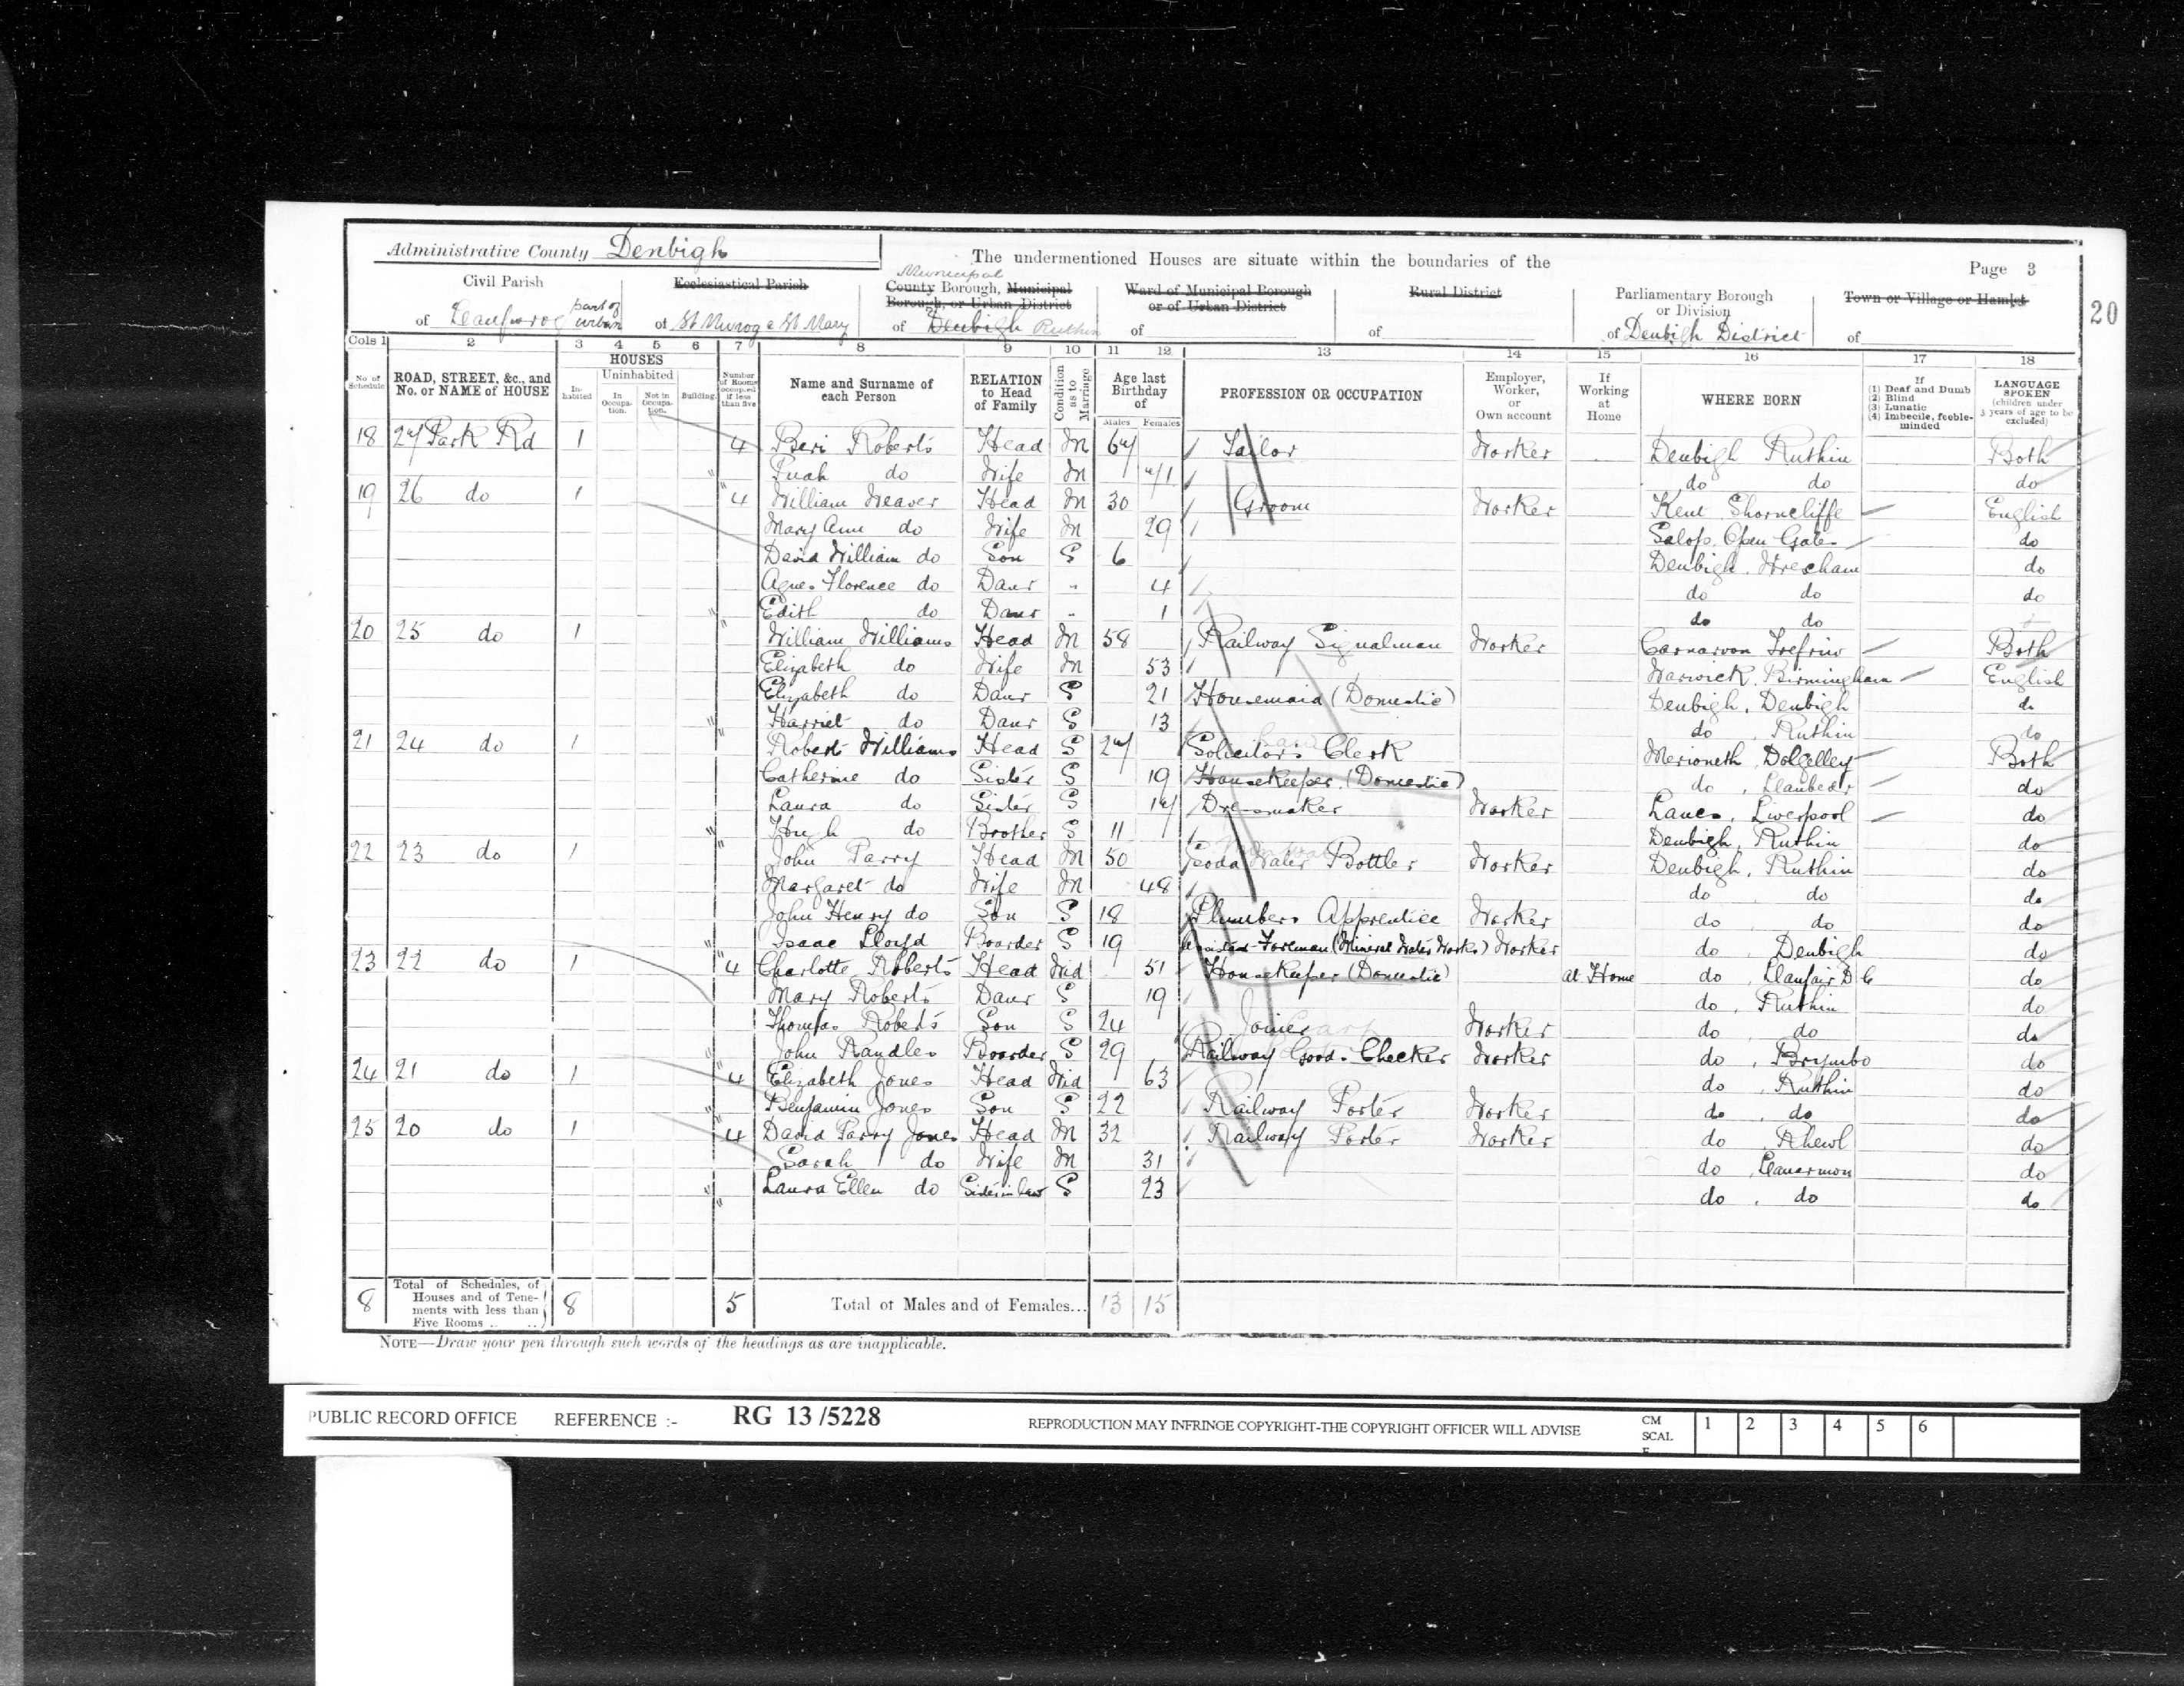 Administrative County Denbigh
The undermentioned Houses are situate within the boundaries of the
Page 3
20
Civil Parish
of part of urban
Ecclesiastical Parish
of St Mwrog & St Mary
Municipal
County Borough, Municipal
Borough, or Urban District
of Denbigh Ruthin
Ward of Municipal Borough
or of Urban District
of
Rural District
of
Parliamentary Borough
or Division
of Denbigh District
Town or Village or Hamlet
of
Cols 1 2 3 4 5 6 7 8 9 10 11 12 13 14 15 16 17 18
No. of Schedule
ROAD, STREET, &c., and No. or NAME of HOUSE
HOUSES
In-habited
Uninhabited
In Occupa-tion.
Not in Occupa-tion.
Building.
Number of Rooms occupied if less than five
Name and Surname of each Person
RELATION to Head of Family
Condition as to Marriage
Age last Birthday of
Males Females
PROFESSION OR OCCUPATION
Employer, Worker, or Own account
If Working at Home
WHERE BORN
If
(1) Deaf and Dumb
(2) Blind
(3) Lunatic
(4) Imbecile, feeble-minded
LANGUAGE SPOKEN
(children under 3 years of age to be excluded)
18 27 Park Rd 1 4 Roberts Head M 67 Tailor Worker Denbigh Ruthin Both
Puah do Wife M 71 do do do
19 26 do 1 4 William Weaver Head M 30 Groom Worker Kent Shorncliffe English
Mary Ann do Wife M 29 Salop. Open Gate do
David William do Son S 6 Denbigh. Wrexham do
Agnes Florence do Daur - 4 do do do
Edith do Daur - 1 do do
20 25 do 1 William Williams Head M 58 Railway Signalman Worker Carnarvon Trefriw Both
Elizabeth do Wife M 53 Warwick. Birmingham English
Elizabeth do Daur S 21 Housemaid (Domestic) Denbigh, Denbigh do
Harriet do Daur S 13 do , Ruthin do
21 24 do 1 Robert Williams Head S 27 Solicitors Clerk Merioneth Dolgelley Both
Catherine do Sister S 19 Housekeeper (Domestic) do , Llanbedr do
Laura do Sister S 17 Dressmaker Worker Lancs, Liverpool do
Hugh do Brother S 11 Denbigh, Ruthin do
22 23 do 1 John Parry Head M 50 Soda Water Bottler Worker Denbigh, Ruthin do
Margaret do Wife M 48 do do do
John Henry do Son S 18 Plumbers Apprentice Worker do do do
Isaac Lloyd Boarder S 19 Assistant Foreman (Mineral Water Works) Worker do , Denbigh do
23 22 do 1 4 Charlotte Roberts Head Wid 51 Housekeeper (Domestic) at Home do , Llanfair D C do
Mary Roberts Daur S 19 do , Ruthin do
Thomas Roberts Son S 24 Joiner Worker do do do
John Randles Boarder S 29 Railway Goods Checker Worker do , Brymbo do
24 21 do 1 4 Elizabeth Jones Head Wid 63 do , Ruthin do
Benjamin Jones Son S 22 Railway Porter Worker do , do do
25 20 do 1 4 David Parry Jones Head M 32 Railway Porter Worker do , Rhewl do
Sarah do Wife M 31 do , Llanarmon do
Laura Ellen do Sister in law S 23 do , do do
8 Total of Schedules, of Houses and of Tenements with less than Five Rooms .. .. 8 5 Total of Males and of Females... 13 15
NOTE—Draw your pen through such words of the headings as are inapplicable.
PUBLIC RECORD OFFICE REFERENCE :- RG 13 /5228 REPRODUCTION MAY INFRINGE COPYRIGHT-THE COPYRIGHT OFFICER WILL ADVISE CM SCALE 1 2 3 4 5 6